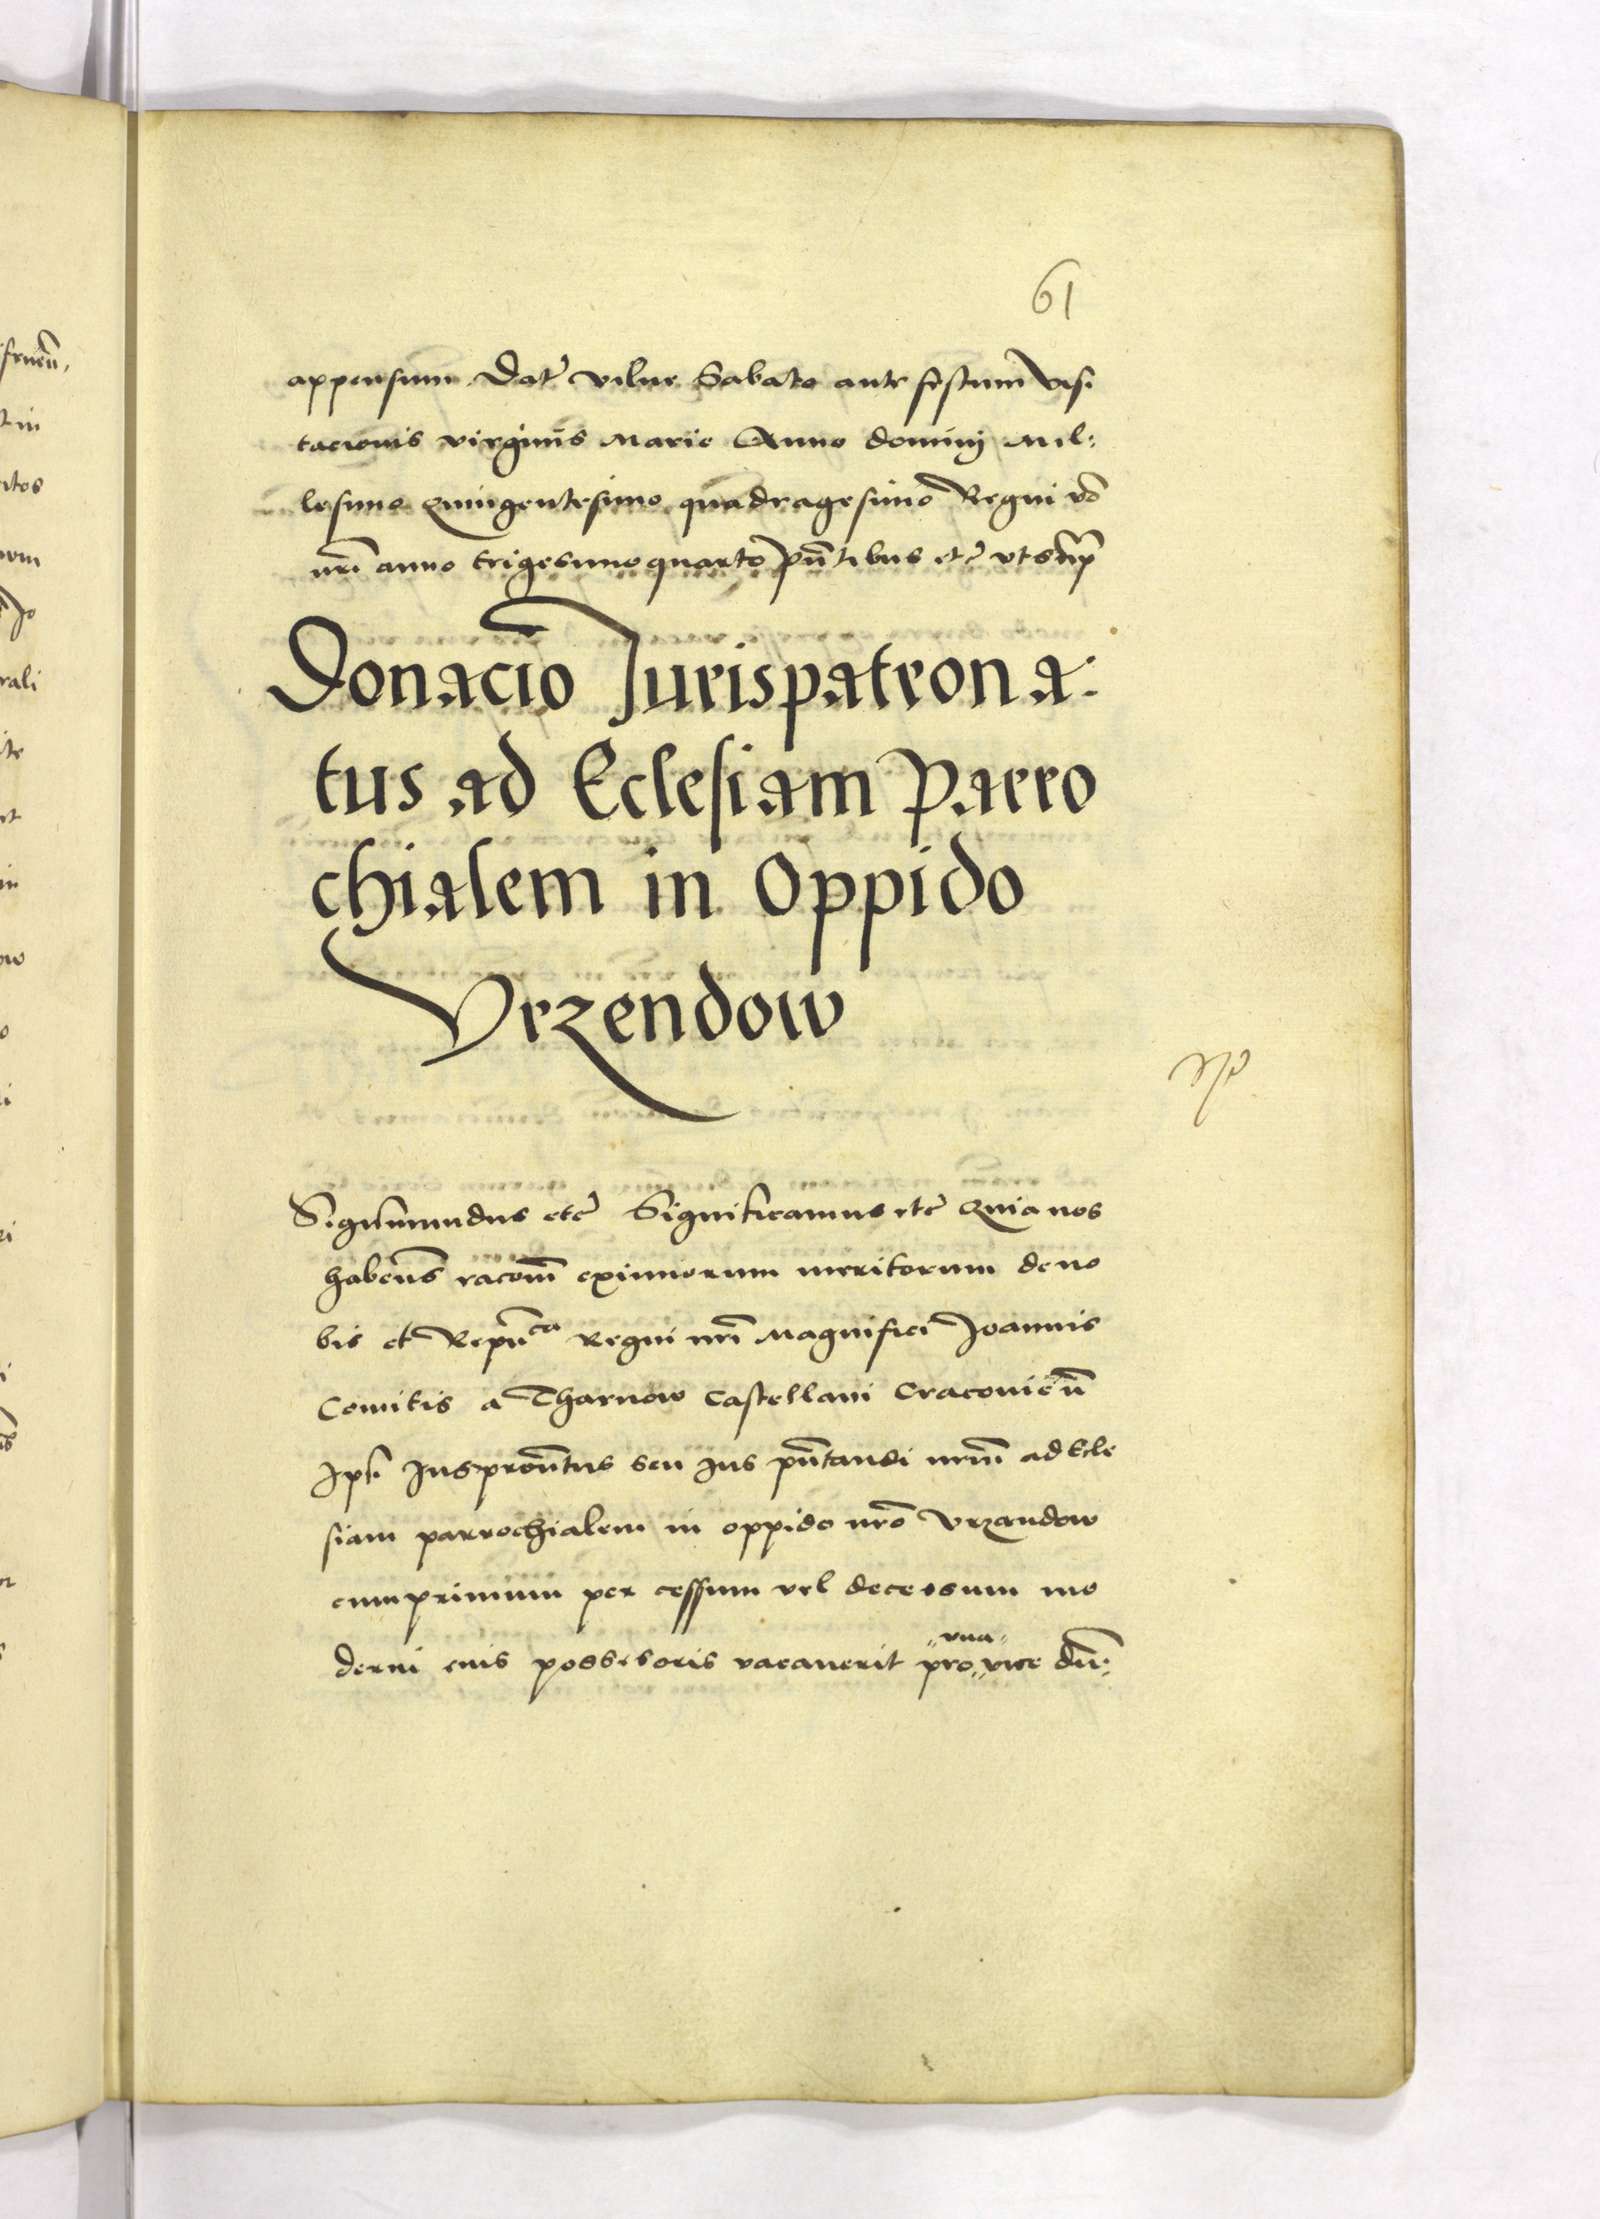 61
appensum Dat̃ vilne Sabato ante festum visi
tacionis virginis Marie Anno domini Mil:
lesimo Quingentesimo quadragesimo Regni vo
nrĩ anno trigesimoquarto pñtibus etc̃ vt sup̃
Donacio Jurispatrona:
tus ad Eclesiam Parro
chialem in Oppido
Vrzendow
Sigismundus etc̃ Significamus etc̃ Quia nos
habẽns racoñm eximiorum meritorum de no
bis et Repuca Regni nrĩ Magnifici Joannis
Comitis a Tharnow Castellani Cracovieñ
Ipsi Jusproñtus seu Jus pñtandi nrm̃ ad Ecle
siam parrochialem in oppido nrõ Vrzandow
cumprimum per cessum vel decessum mo
derni eius possesoris vacauerit pro vna vice dũ: